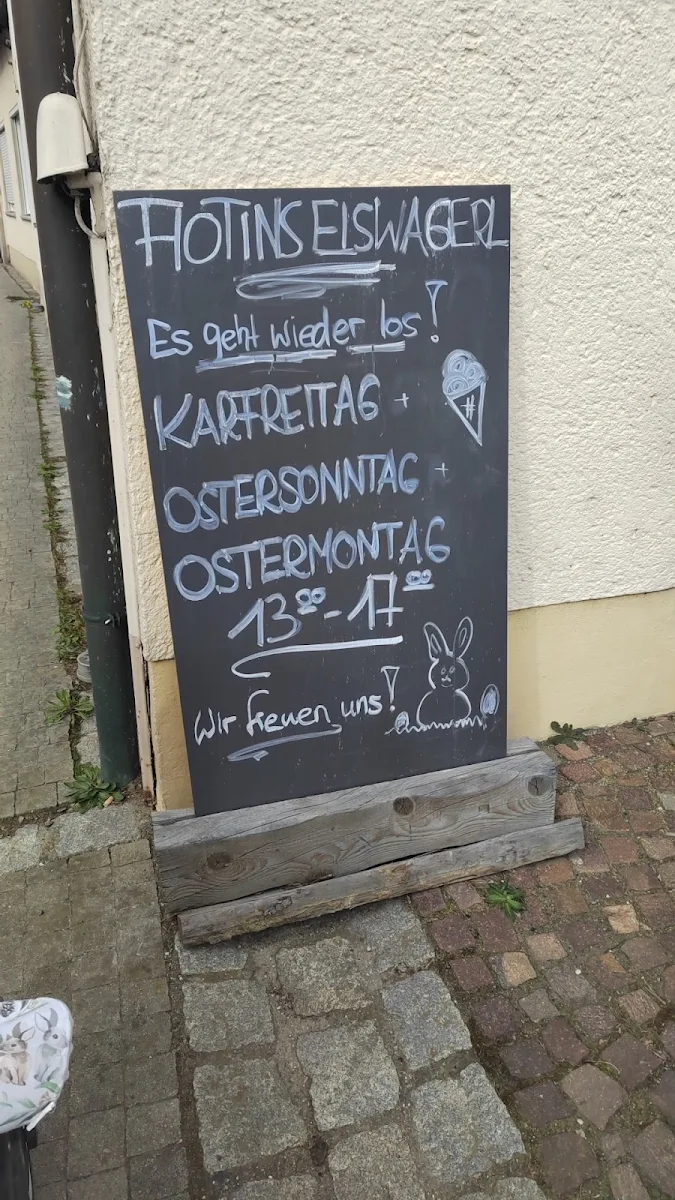 FLOTINS EISWAGERL
Es geht wieder los!
KARFREITAG +
OSTERSONNTAG +
OSTERMONTAG
13⁰⁰ - 17⁰⁰
Wir freuen uns!